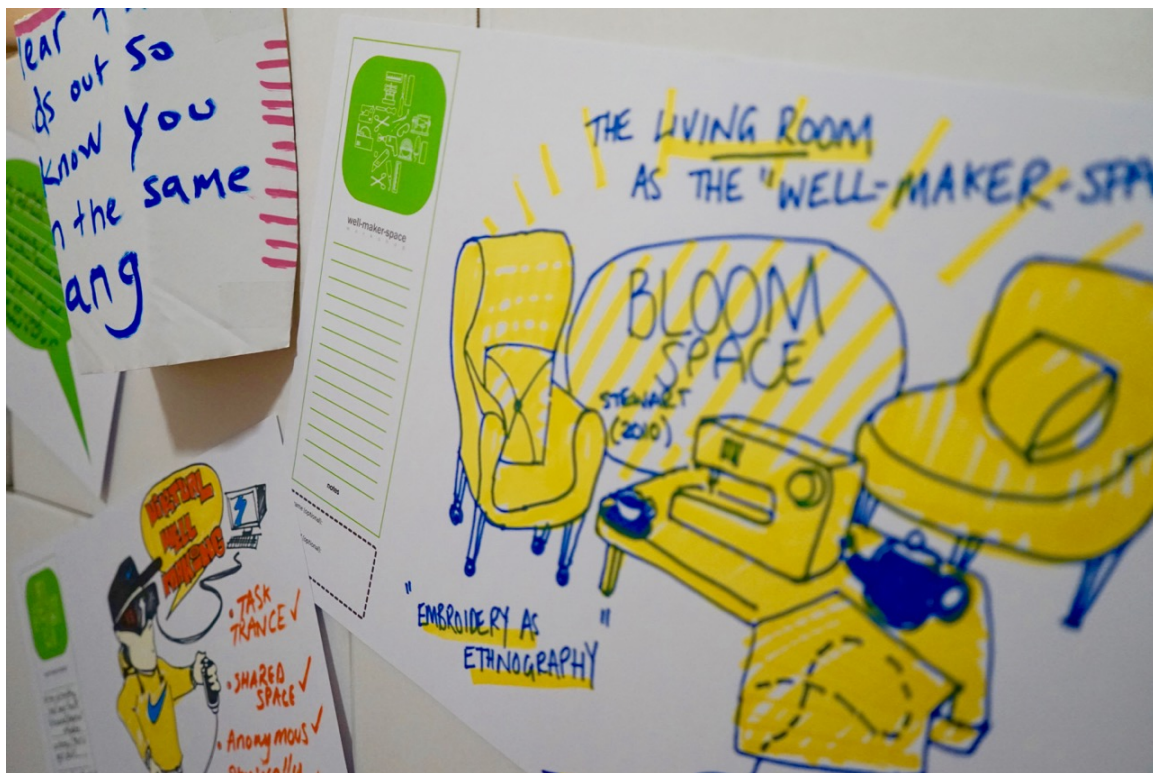 lear
ds out so
know you
n the same
ang
well-maker-space
notes
(optional)
(optional)
THE LIVING ROOM
AS THE "WELL-MAKER-SPA
BLOOM
SPACE
STEWART
(2010)
"EMBROIDERY AS
ETHNOGRAPHY"
VIRTUAL
WELL
MAKING
• TASK
TRANCE ✓
• SHARED
SPACE ✓
• Anonymous ✓